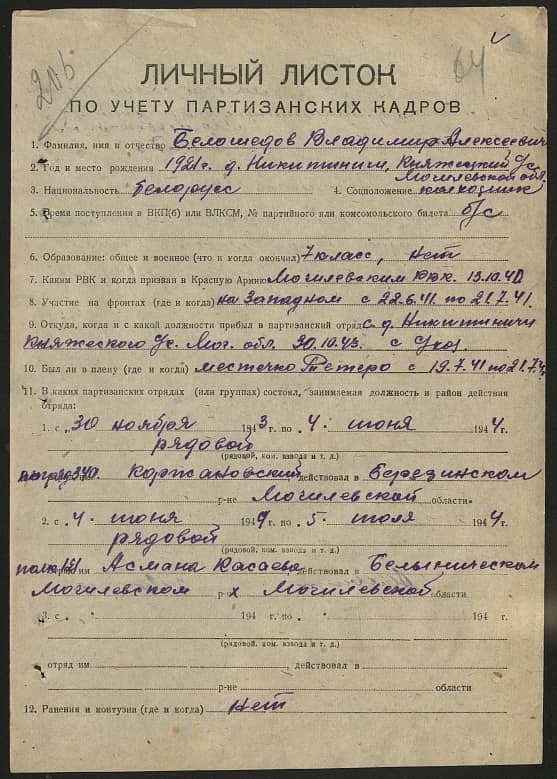 216
64
ЛИЧНЫЙ ЛИСТОК
ПО УЧЕТУ ПАРТИЗАНСКИХ КАДРОВ
1. Фамилия, имя и отчество Белошедов Владимир Алексеевич
2. Год и место рождения 1921 г. д. Никитиничи, Княжецкий с/с
Могилевской обл.
3. Национальность Белорусс 4. Соцположение колхозник
5. Время поступления в ВКП(б) или ВЛКСМ, № партийного или комсомольского билета б/с
6. Образование: общее и военное (что и когда окончил) 7 класс, нет
7. Каким РВК и когда призван в Красную Армию Могилевским РВК. 13.10.40
8. Участие на фронтах (где и когда) на Западном с 22.6.41. по 21.7.41.
9. Откуда, когда и с какой должности прибыл в партизанский отряд с д. Никитиничи
Княжеского с/с. Мог. обл. 30.10.43. с
10. Был ли в плену (где и когда) местечко Тетеро с 19.7.41 по 21.7.4
11. В каких партизанских отрядах (или группах) состоял, занимаемая должность и район действия
отряда:
1. с „30 ноября 1943 г. по „4. июня 1944 г.
рядовой
(рядовой, ком. взвода и т. д.)
Коржановский действовал в Березинском
р-не Могилевской области.
2. с „4. июня 1944 г. по „5. июля 1944 г.
рядовой
(рядовой, ком. взвода и т. д.)
полк 121 отряд им Асмана Касаева действовал в Белыническом
Могилевском р-х Могилевской области
3. с „ “ 194 г. по „ “ 194 г.
(рядовой, ком. взвода и т. д.)
отряд им действовал в
р-не области
12. Ранения и контузии (где и когда) нет